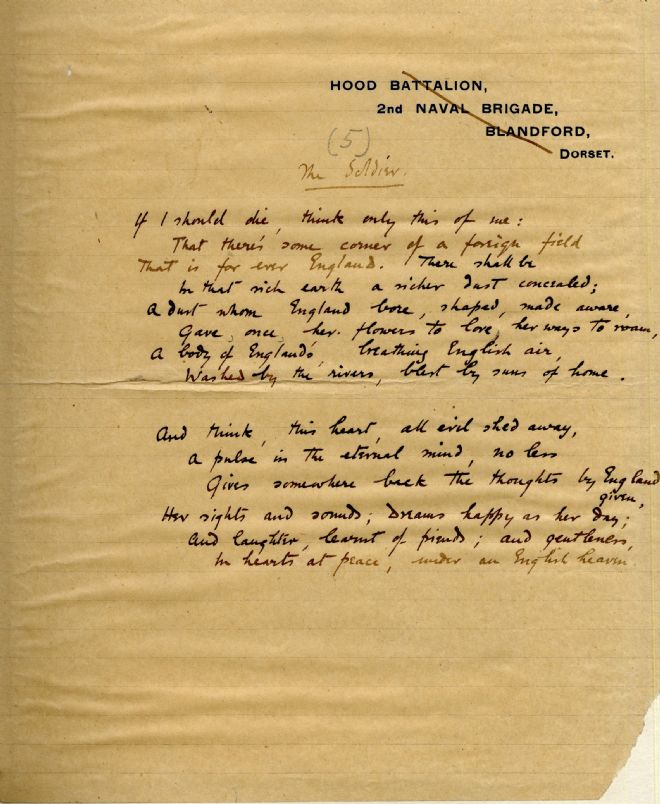 HOOD BATTALION,
2nd NAVAL BRIGADE,
BLANDFORD,
DORSET.
(5)
The Soldier.
If I should die, think only this of me:
That there's some corner of a foreign field
That is for ever England. There shall be
In that rich earth a richer dust concealed;
A dust whom England bore, shaped, made aware,
Gave, once, her flowers to love, her ways to roam,
A body of England's, breathing English air,
Washed by the rivers, blest by suns of home.
And think, this heart, all evil shed away,
A pulse in the eternal mind, no less
Gives somewhere back the thoughts by England
given,
Her sights and sounds; dreams happy as her day;
And laughter, learnt of friends; and gentleness,
In hearts at peace, under an English heaven.